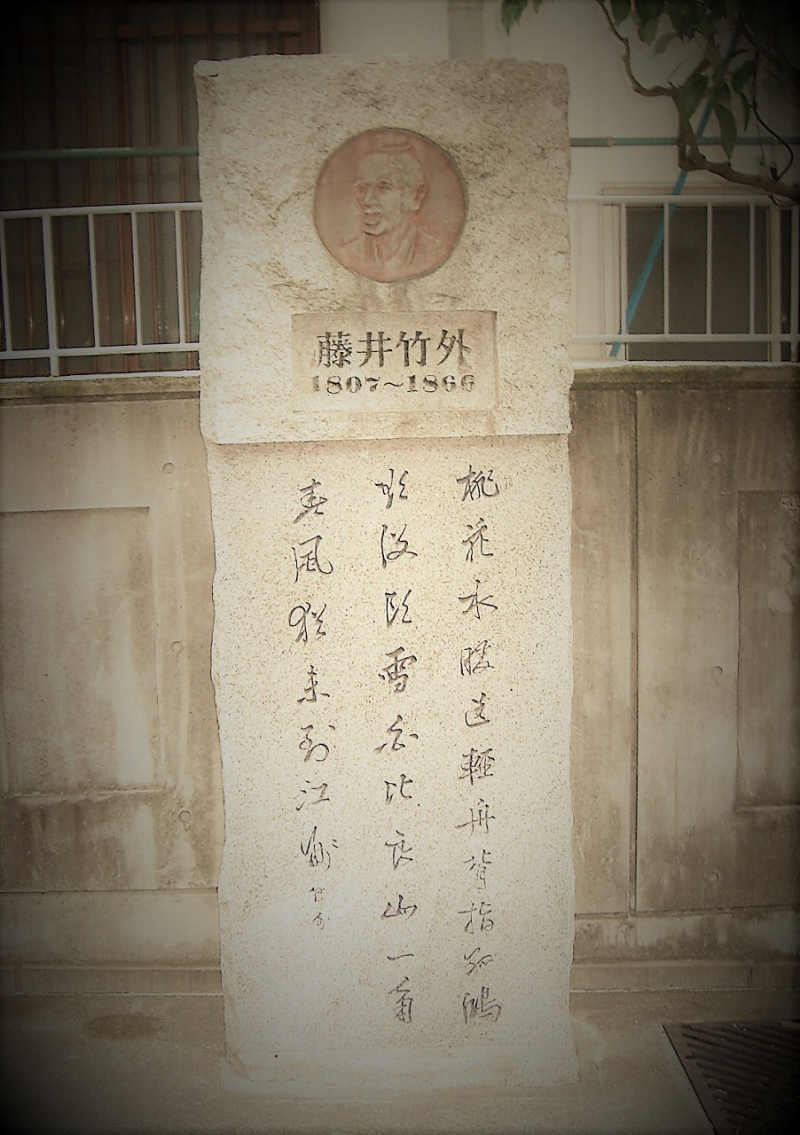 藤井竹外
1807~1866
桃花水暖送輕舟背指孤鴻
欲没頭雪白比良山一角
春風猶未到江州 竹外